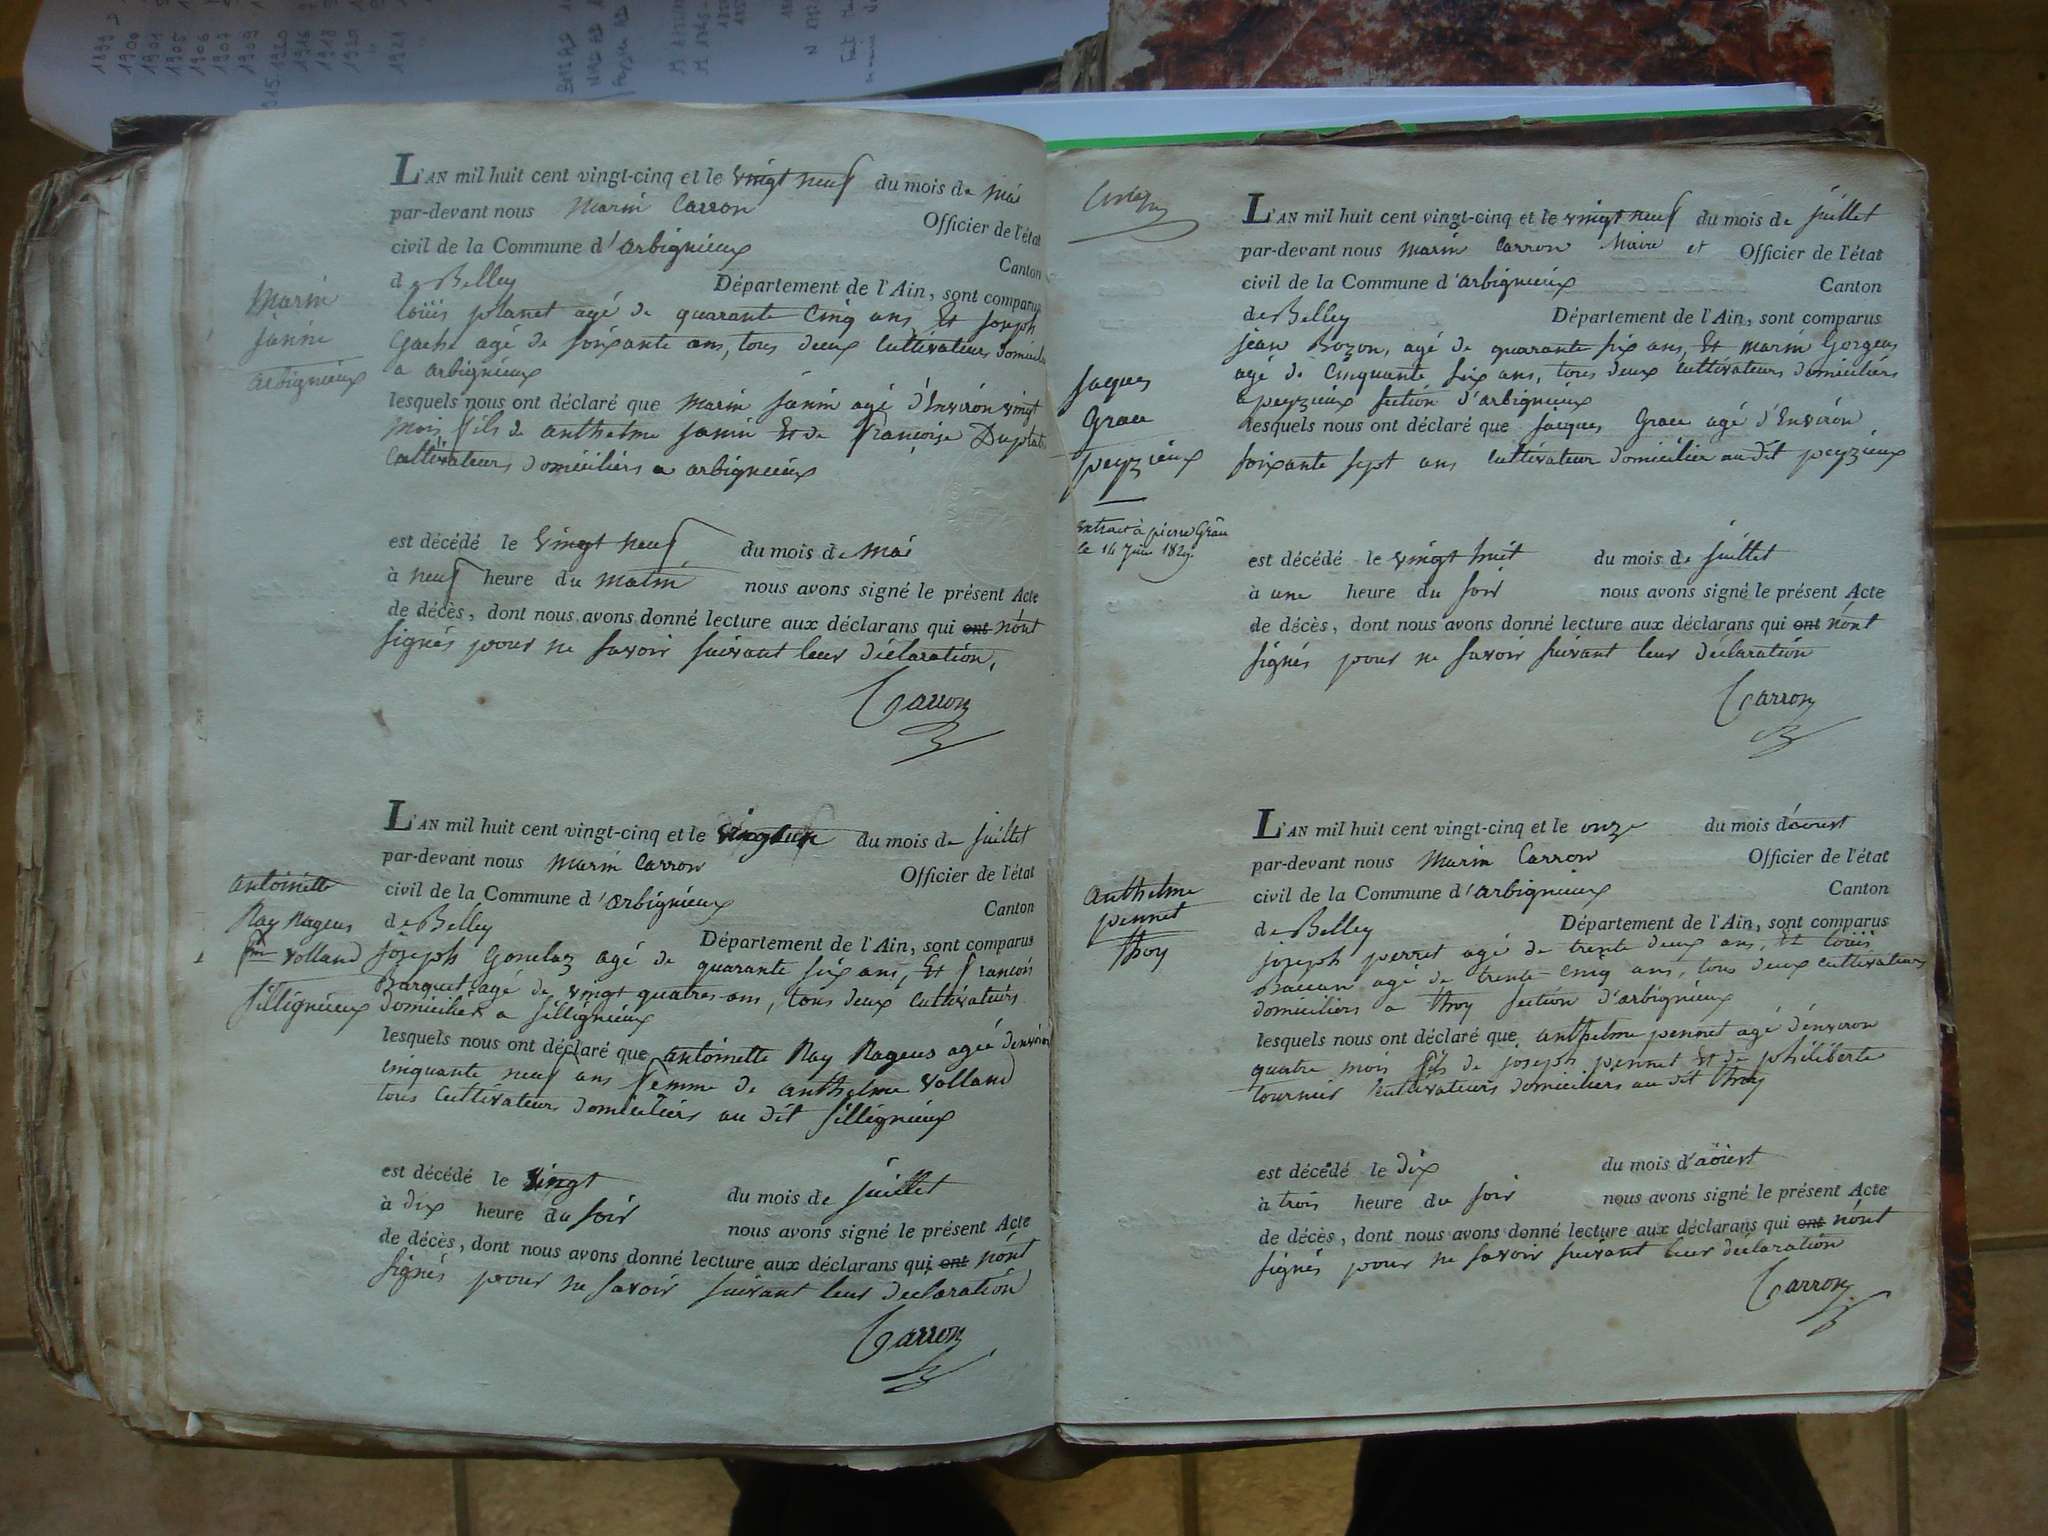 Marin
janin
arbignieux
L'AN mil huit cent vingt-cinq et le vingt neuf du mois de mai
par-devant nous Marin Carron Officier de l'état
civil de la Commune d'arbignieux Canton
de Belley Département de l'Ain, sont comparus
loüis planet agé de quarante cinq ans, Et joseph
Gache agé de soixante ans, tous deux cultivateurs domiciliés
a arbignieux
lesquels nous ont déclaré que Marin janin agé d'Environ vingt
mois fils de anthelme janin Et de françoise
cultivateurs domiciliers a arbignieux
est décédé le vingt neuf du mois de mai
à neuf heure du matin nous avons signé le présent Acte
de décès, dont nous avons donné lecture aux déclarans qui ont n'ont
signés pour ne savoir suivant leur déclaration,
Carron
antoinette
Ray Rageus
fm volland
sillignieux
L'AN mil huit cent vingt-cinq et le vingt un du mois de juillet
par-devant nous Marin Carron Officier de l'état
civil de la Commune d'arbignieux Canton
de Belley Département de l'Ain, sont comparus
joseph agé de quarante six ans, Et francois
Barquet agé de vingt quatres ans, tous deux cultivateurs
domiciliés a sillignieux
lesquels nous ont déclaré que antoinette Ray Rageus agée d'environ
cinquante neuf ans femme de anthelme volland
tous cultivateurs domiciliers au dit sillignieux
est décédé le vingt du mois de juillet
à dix heure du soir nous avons signé le présent Acte
de décès, dont nous avons donné lecture aux déclarans qui ont n'ont
signés pour ne savoir suivant leur déclaration
Carron
jaques
Grace
peyzieux
extrait à pierre
le 14 juin
L'AN mil huit cent vingt-cinq et le vingt neuf du mois de juillet
par-devant nous Marin Carron Maire et Officier de l'état
civil de la Commune d'arbignieux Canton
de Belley Département de l'Ain, sont comparus
jean Bozon, agé de quarante six ans, Et marin Gorgeus
agé de cinquante six ans, tous deux cultivateurs domiciliers
a peyzieux section d'arbignieux
lesquels nous ont déclaré que jacques Grace agé d'Environ
soixante sept ans cultivateur domicilier au dit peyzieux
est décédé le vingt huit du mois de juillet
à une heure du soir nous avons signé le présent Acte
de décès, dont nous avons donné lecture aux déclarans qui ont n'ont
signés pour ne savoir suivant leur déclaration
Carron
anthelme
pennet
thoy
L'AN mil huit cent vingt-cinq et le onze du mois d'aoust
par-devant nous Marin Carron Officier de l'état
civil de la Commune d'arbignieux Canton
de Belley Département de l'Ain, sont comparus
joseph perret agé de trente deux ans, Et louis
agé de trente cinq ans, tous deux cultivateurs
domiciliers a thoy section d'arbignieux
lesquels nous ont déclaré que anthelme pennet agé d'environ
quatre mois fils de joseph pennet Et de philiberte
tournier cultivateurs domiciliers au dit thoy
est décédé le dix du mois d'aoüst
à trois heure du soir nous avons signé le présent Acte
de décès, dont nous avons donné lecture aux déclarans qui ont n'ont
signés pour ne savoir suivant leur déclaration
Carron